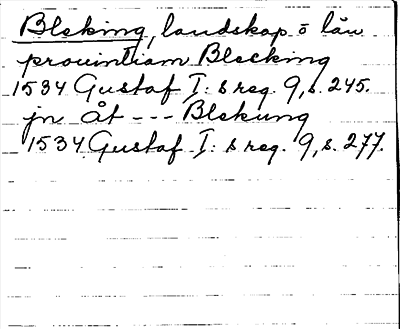 Bleking, landskap o län
prouintiam Blecking
1534 Gustaf I: s reg. 9, s. 245.
jn åt --- Blekung
1534 Gustaf I: s reg. 9, s. 277.